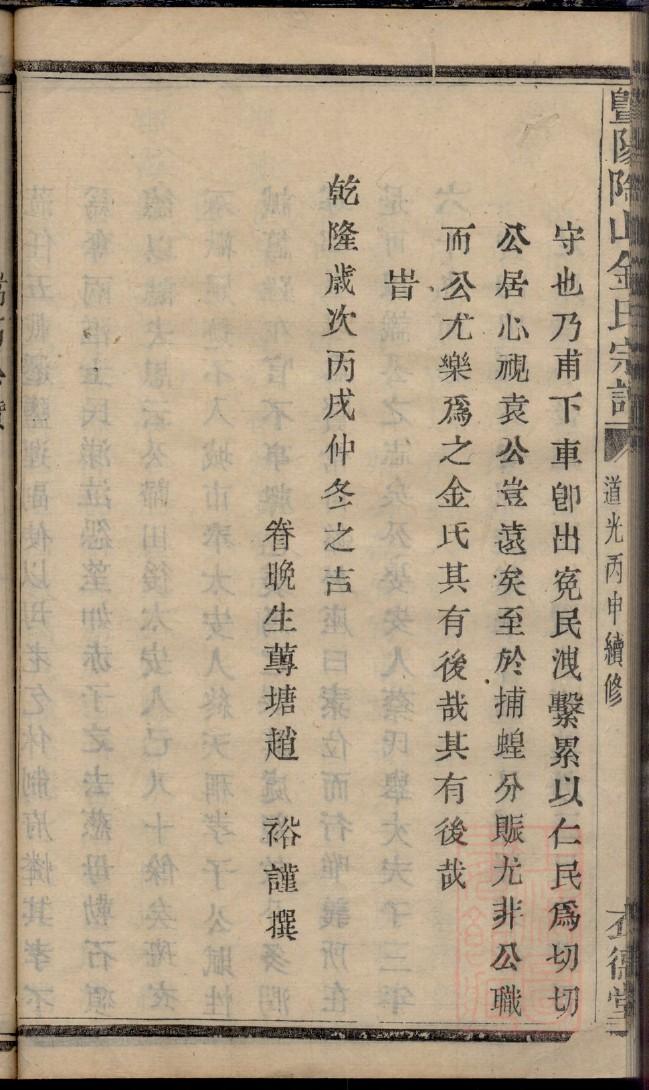 暨陽陶山金氏宗譜
道光丙申續修
德堂
守也乃甫下車卽出寃民洩繫累以仁民爲切切
公居心視袁公豈遠矣至於捕蝗分賑尤非公職
而公尤樂爲之金氏其有後哉其有後哉
旹
乾隆歲次丙戌仲冬之吉
眷晚生蓴塘趙 裕謹撰